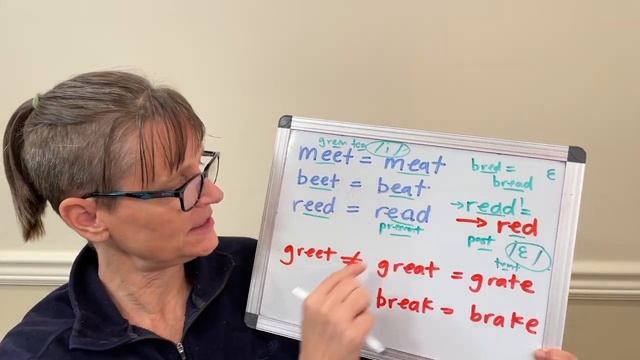 green tea /i/
meet = meat
beet = beat
reed = read
present
bred = ɛ
bread
→read! =
→ red
past /ɛ/
greet ≠ great = grate
break = brake